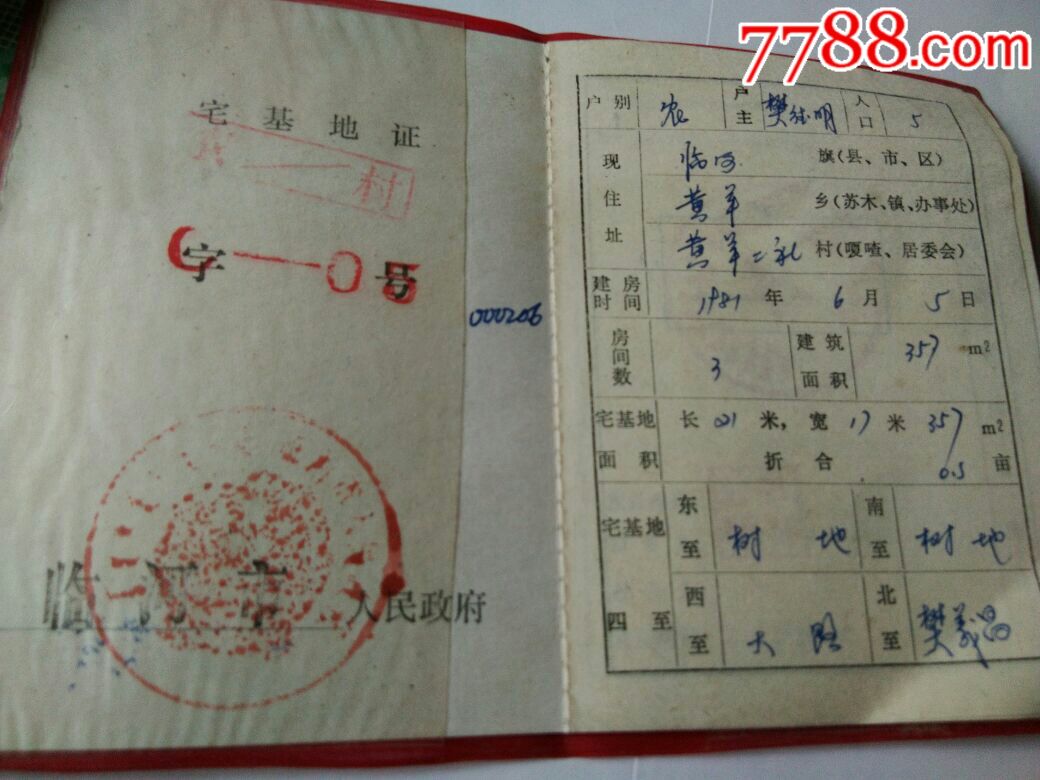 7788.com
宅基地证
村
字 一05 号
000206
临河市人民政府
户别 农 户主 樊 明 人口 5
现住址 临河 旗(县、市、区)
黄羊 乡(苏木、镇、办事处)
黄羊二社 村(嘎喳、居委会)
建房时间 1981 年 6 月 5 日
房间数 3 建筑面积 357 m²
宅基地面积 长 21 米, 宽 17 米 357 m²
折合 0.5 亩
宅基地四至 东至 树地 南至 树地
西至 大路 北至 樊义昌